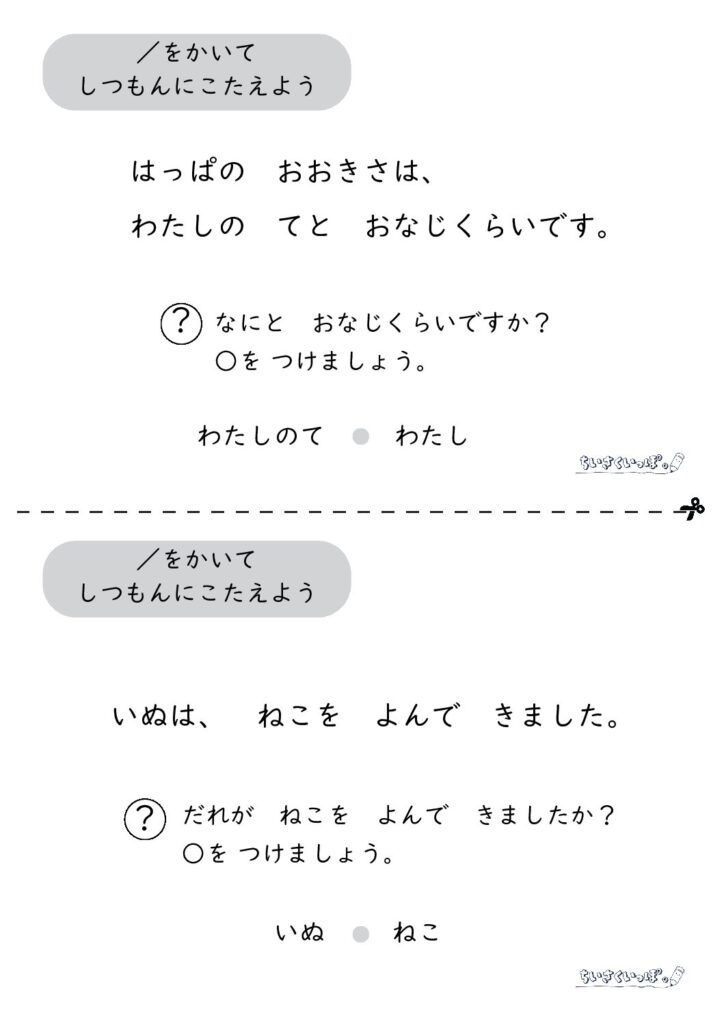 ／をかいて
しつもんにこたえよう
はっぱの　おおきさは、
わたしの　てと　おなじくらいです。
? なにと　おなじくらいですか？
○を つけましょう。
わたしのて ● わたし
ちいさくいっぽ。
／をかいて
しつもんにこたえよう
いぬは、　ねこを　よんで　きました。
? だれが　ねこを　よんで　きましたか？
○を つけましょう。
いぬ ● ねこ
ちいさくいっぽ。